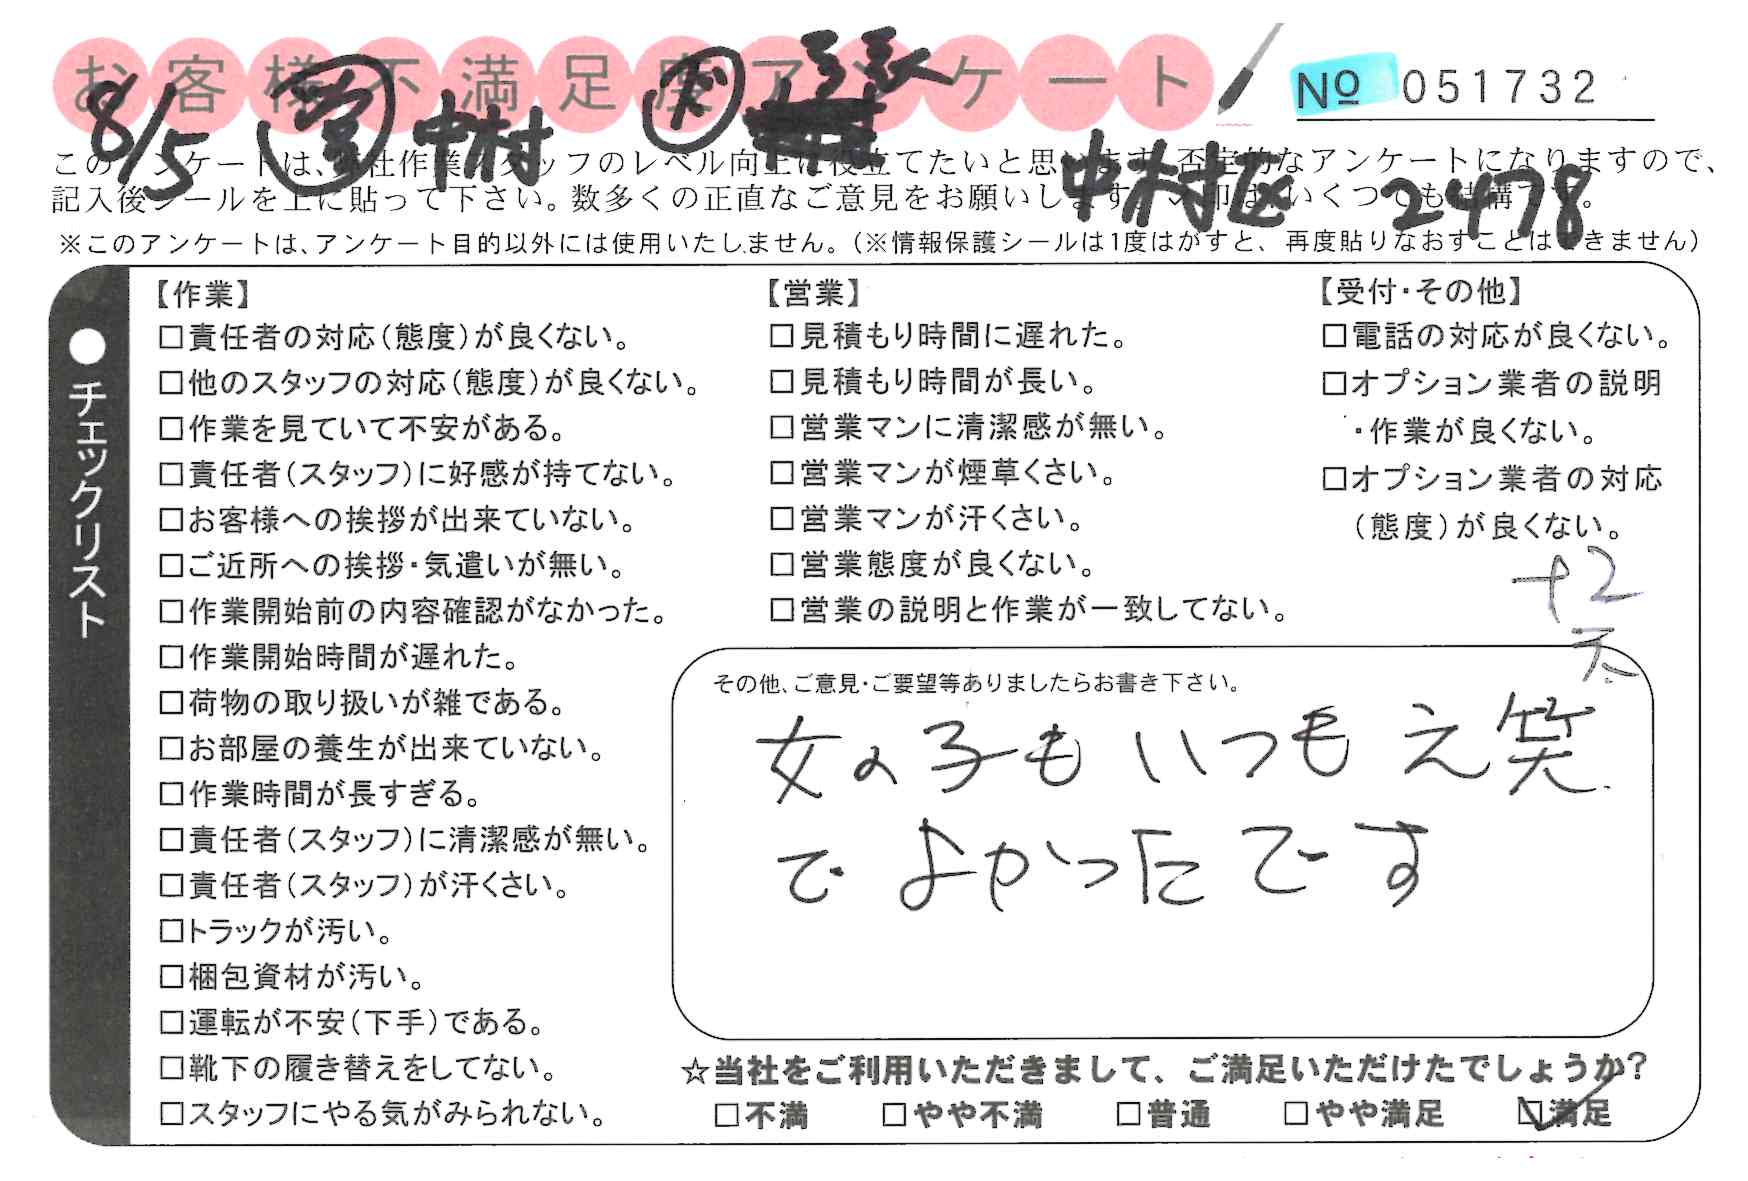 お客様不満足度アンケート
№ 051732
8/5 営 中村
中村区 2478
このアンケートは、弊社作業スタッフのレベル向上に役立てたいと思います。否定的なアンケートになりますので、
記入後シールを上に貼って下さい。数多くの正直なご意見をお願いします。✓印はいくつでも結構です。
※このアンケートは、アンケート目的以外には使用いたしません。(※情報保護シールは1度はがすと、再度貼りなおすことはできません)
●チェックリスト
【作業】
□責任者の対応(態度)が良くない。
□他のスタッフの対応(態度)が良くない。
□作業を見ていて不安がある。
□責任者(スタッフ)に好感が持てない。
□お客様への挨拶が出来ていない。
□ご近所への挨拶・気遣いが無い。
□作業開始前の内容確認がなかった。
□作業開始時間が遅れた。
□荷物の取り扱いが雑である。
□お部屋の養生が出来ていない。
□作業時間が長すぎる。
□責任者(スタッフ)に清潔感が無い。
□責任者(スタッフ)が汗くさい。
□トラックが汚い。
□梱包資材が汚い。
□運転が不安(下手)である。
□靴下の履き替えをしてない。
□スタッフにやる気がみられない。
【営業】
□見積もり時間に遅れた。
□見積もり時間が長い。
□営業マンに清潔感が無い。
□営業マンが煙草くさい。
□営業マンが汗くさい。
□営業態度が良くない。
□営業の説明と作業が一致してない。
【受付・その他】
□電話の対応が良くない。
□オプション業者の説明
・作業が良くない。
□オプション業者の対応
(態度)が良くない。
+2
その他、ご意見・ご要望等ありましたらお書き下さい。
女の子もいつもえ笑
でよかったです
☆当社をご利用いただきまして、ご満足いただけたでしょうか?
□不満 □やや不満 □普通 □やや満足 ☑満足